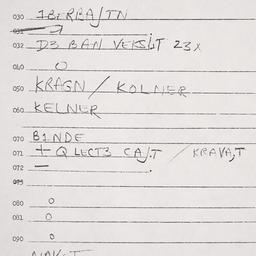 030 1BERBAJTN
031
032 D3 BAN VERSILT 23x
040 O
050 KRAGN / KOLNER
060 KELNER
070 B1NDE
071 + Q LECT3 CAJ.T / KRAVAJT
072 —
073
080 O
081 O
090 O